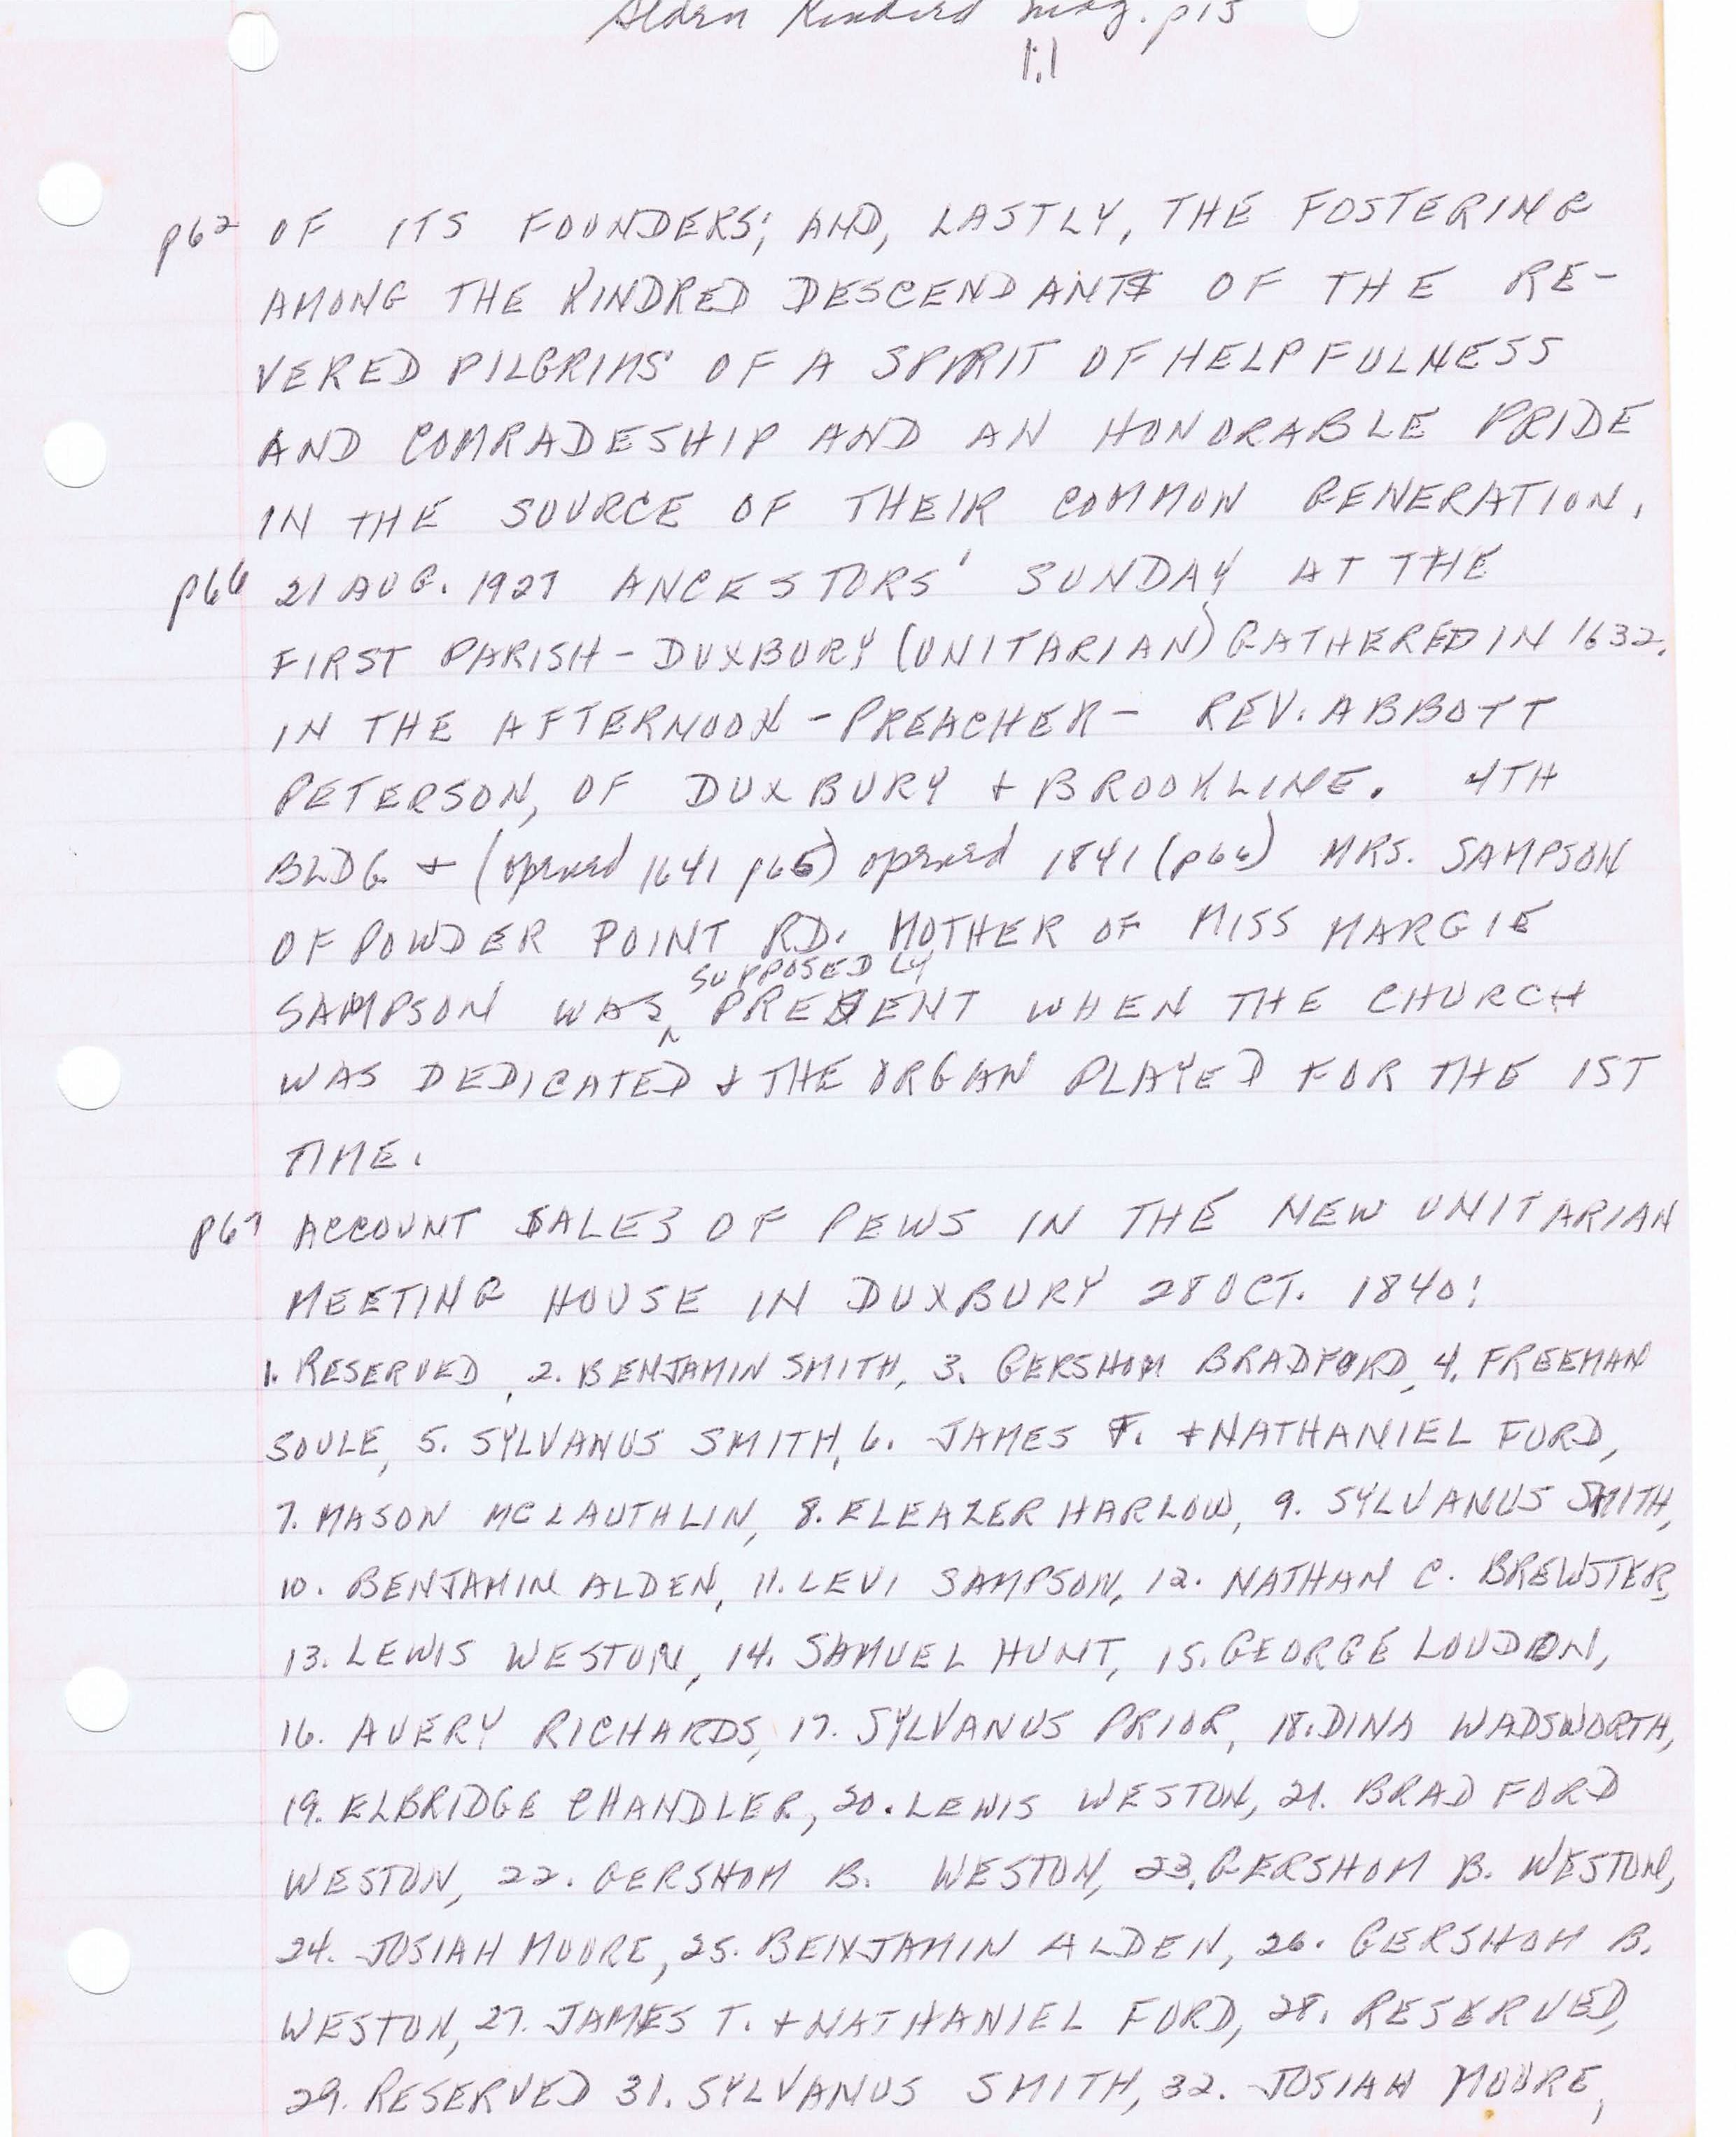 Alden Kindred Mag. p15
1:1
p62 OF ITS FOUNDERS; AND, LASTLY, THE FOSTERING
AMONG THE KINDRED DESCENDANTS OF THE RE-
VERED PILGRIMS OF A SPIRIT OF HELPFULNESS
AND COMRADESHIP AND AN HONORABLE PRIDE
IN THE SOURCE OF THEIR COMMON GENERATION.
p66 21 AUG. 1927 ANCESTORS' SUNDAY AT THE
FIRST PARISH - DUXBURY (UNITARIAN) GATHERED IN 1632.
IN THE AFTERNOON - PREACHER - REV. ABBOTT
PETERSON, OF DUXBURY + BROOKLINE. 4TH
BLDG + (opened 1641 p65) opened 1841 (p66) MRS. SAMPSON
OF POWDER POINT RD. MOTHER OF MISS MARGIE
SAMPSON WAS SUPPOSEDLY PRESENT WHEN THE CHURCH
WAS DEDICATED & THE ORGAN PLAYED FOR THE 1ST
TIME.
p67 ACCOUNT SALES OF PEWS IN THE NEW UNITARIAN
MEETING HOUSE IN DUXBURY 28 OCT. 1840:
1. RESERVED, 2. BENJAMIN SMITH, 3. GERSHOM BRADFORD, 4. FREEMAN
SOULE, 5. SYLVANUS SMITH, 6. JAMES T. + NATHANIEL FORD,
7. MASON MCLAUTHLIN, 8. ELEAZER HARLOW, 9. SYLVANUS SMITH,
10. BENJAMIN ALDEN, 11. LEVI SAMPSON, 12. NATHAN C. BREWSTER,
13. LEWIS WESTON, 14. SAMUEL HUNT, 15. GEORGE LOUDON,
16. AVERY RICHARDS, 17. SYLVANUS PRIOR, 18. DINA WADSWORTH,
19. ELBRIDGE CHANDLER, 20. LEWIS WESTON, 21. BRADFORD
WESTON, 22. GERSHOM B. WESTON, 23. GERSHOM B. WESTON,
24. JOSIAH MOORE, 25. BENJAMIN ALDEN, 26. GERSHOM B.
WESTON, 27. JAMES T. + NATHANIEL FORD, 28. RESERVED,
29. RESERVED 31. SYLVANUS SMITH, 32. JOSIAH MOORE,